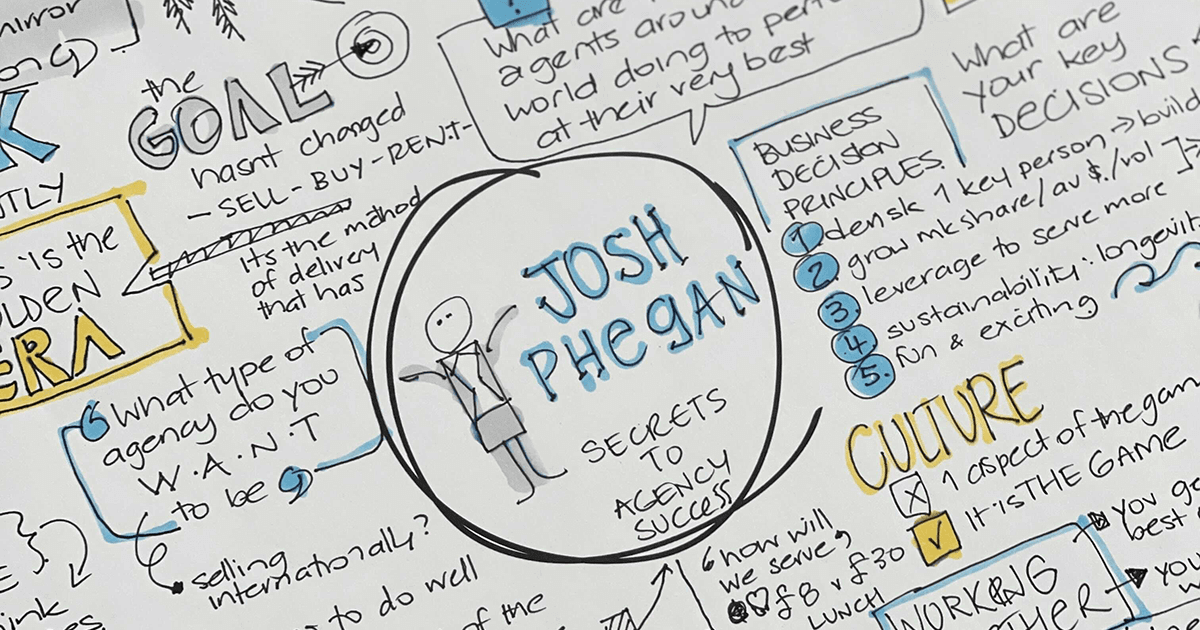 mirror
the
GOAL
hasnt changed
- SELL - BUY - RENT -
Its the method
of delivery
that has
IS the
ERA
What type of
agency do you
W.A.N.T
to be
selling
internationally?
to do well
of the
What are
agents around
world doing to perf
at their very best
JOSH
PHEgAN
SECRETS
TO
AGENCY
SUCCESS
What are
your key
DECISIONS
BUSINESS
DECISION
PRINCIPLES
1 1 key person → build
2 grow mkshare/av $/vol
3 leverage to serve more
4 sustainability: longevit
5. fun & exciting
CULTURE
X 1 aspect of the gam
✓ It is THE GAME
how will
we serve
£8 v £30
LUNCH
WORKING
you
best
you